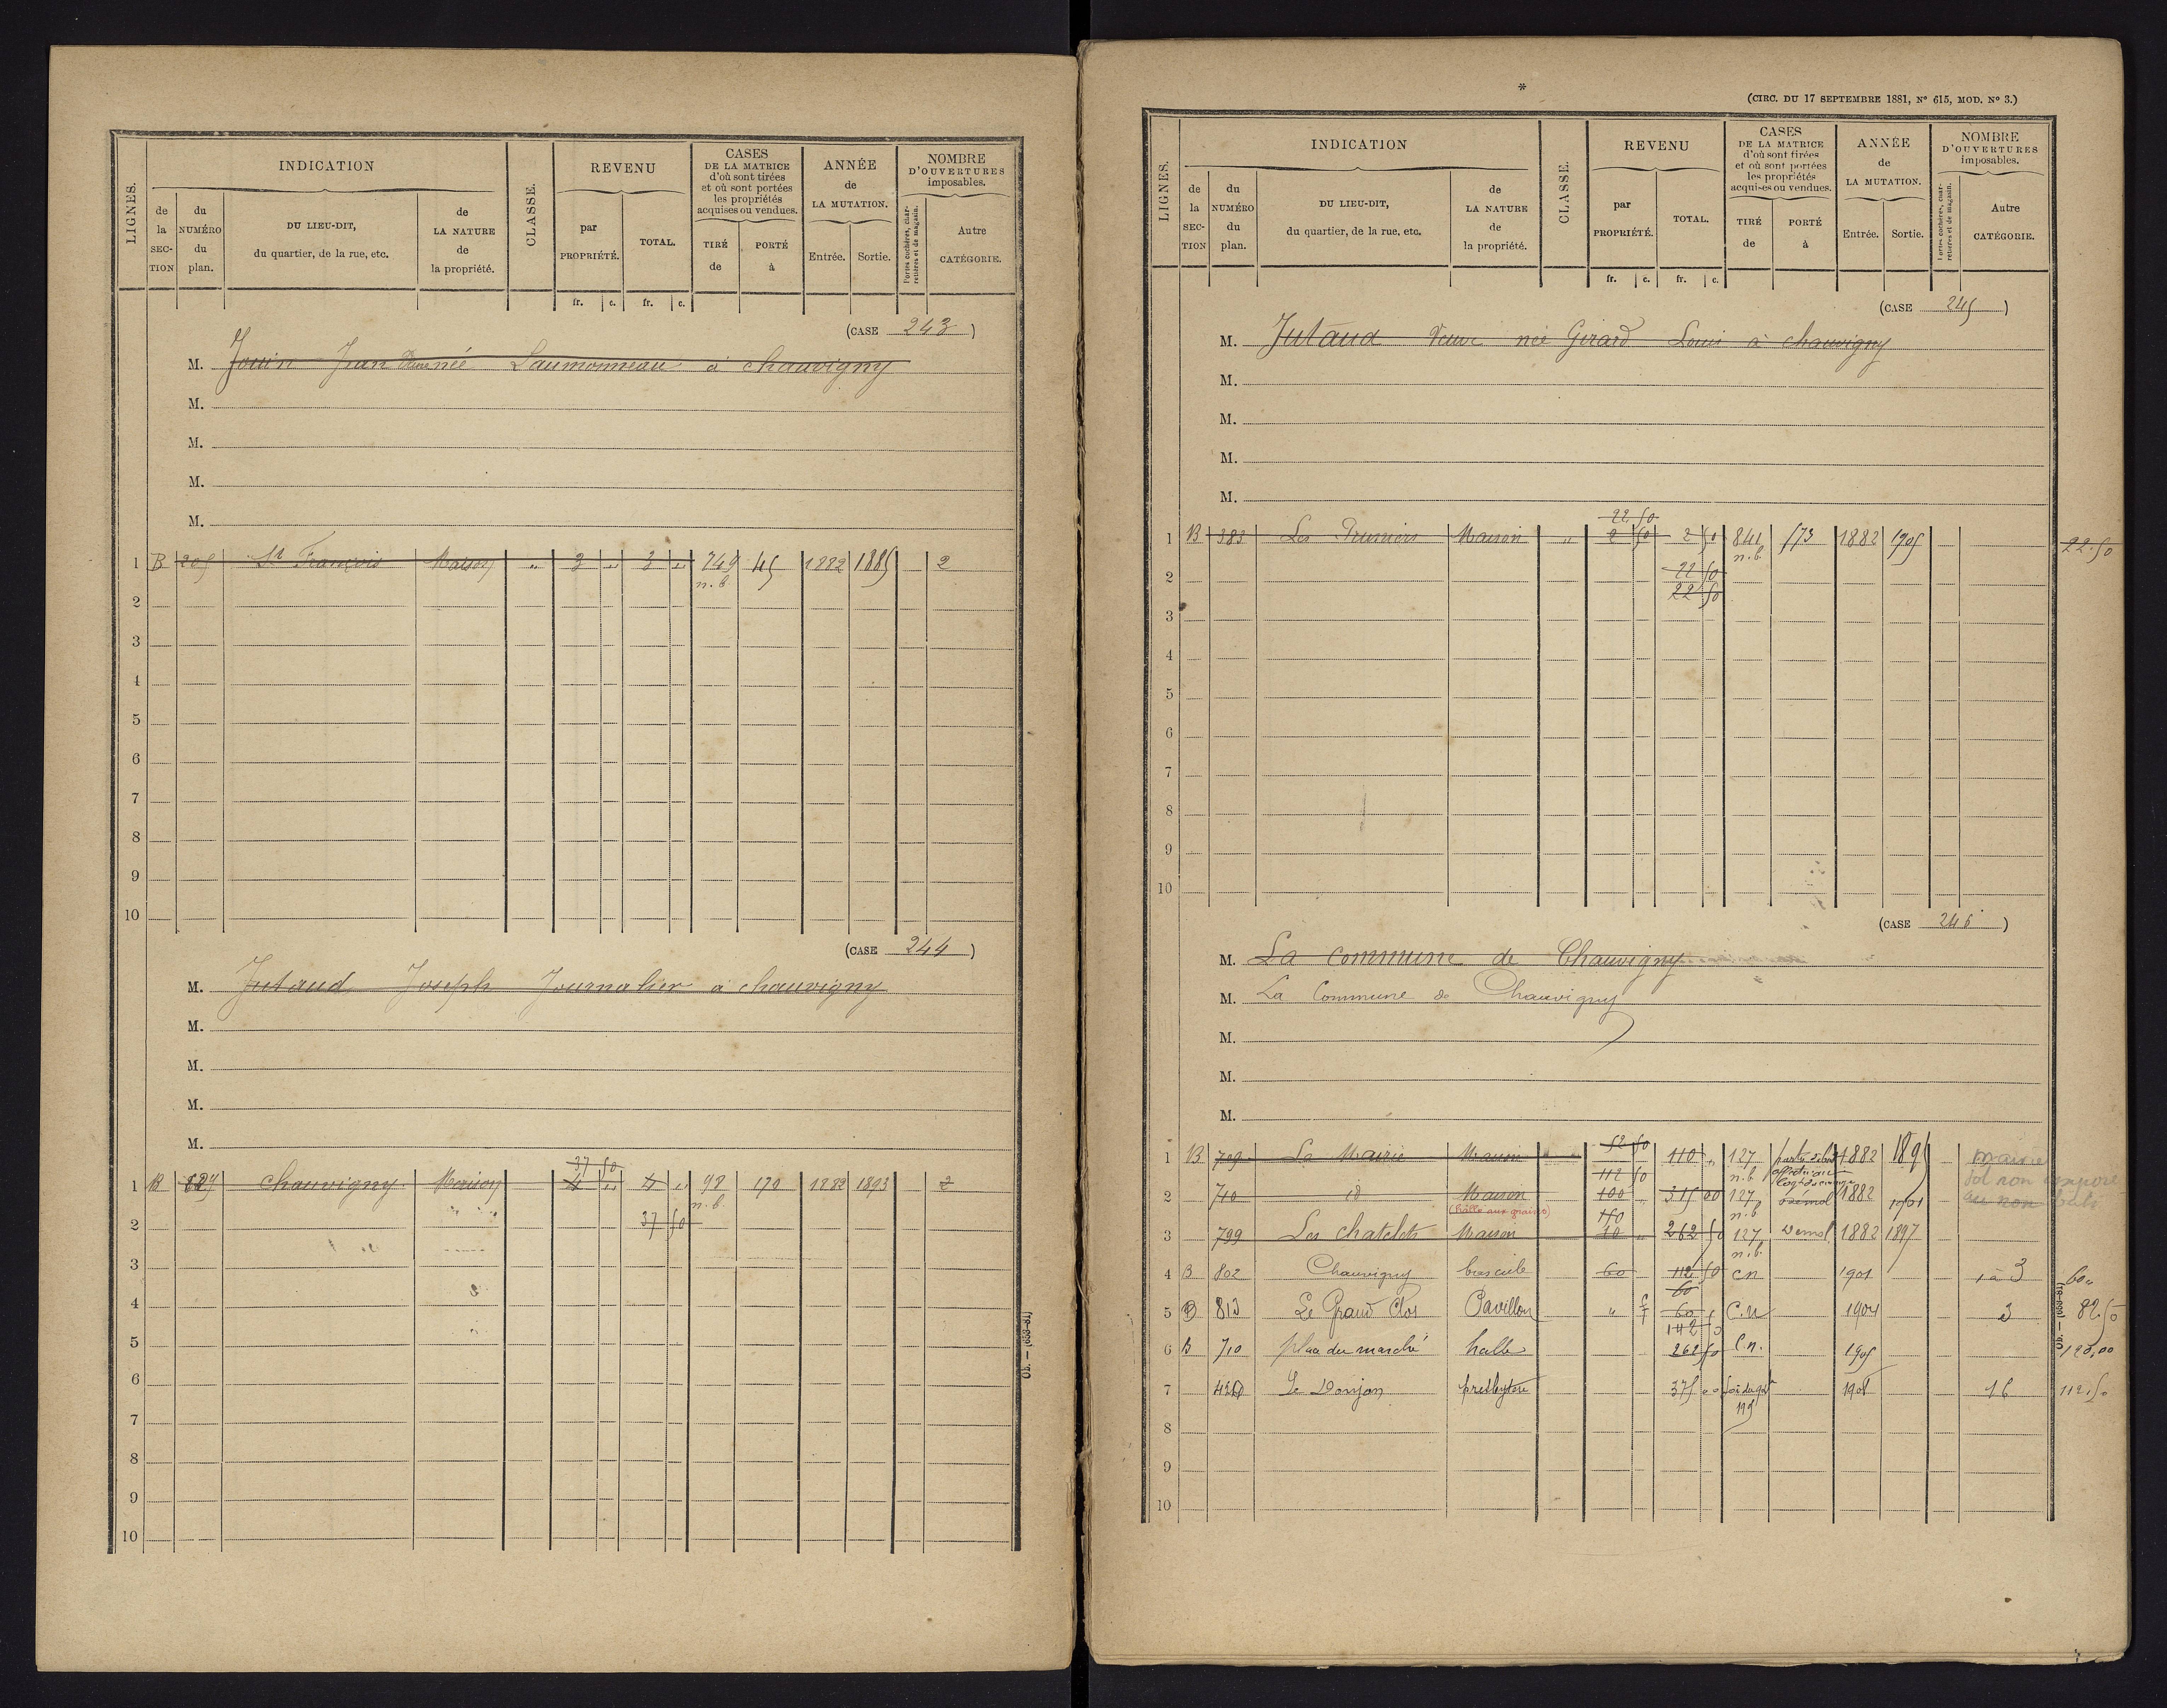 LIGNES.
INDICATION
de la SECTION
du NUMÉRO du plan.
DU LIEU-DIT, du quartier, de la rue, etc.
de LA NATURE de la propriété.
CLASSE.
REVENU
par PROPRIÉTÉ.
TOTAL.
fr. c. fr. c.
CASES DE LA MATRICE d'où sont tirées et où sont portées les propriétés acquises ou vendues.
TIRÉ de
PORTÉ à
ANNÉE de LA MUTATION.
Entrée. Sortie.
NOMBRE D'OUVERTURES imposables.
Portes cochères, charretières et de magasin.
Autre CATÉGORIE.
(CASE 243)
M. Jouin Jean née Laumonneau à chauvigny
M.
M.
M.
M.
1 B 205 St François Maison " 3 " 3 " 749 45 1882 1885 2
n.b
2
3
4
5
6
7
8
9
10
(CASE 244)
M. Jutaud Joseph Journalier à chauvigny
M.
M.
M.
M.
37 50
1 B chauvigny Maison 4 " 4 " 98 170 1882 1893 2
n.b.
2 37 50
3
4
5
6
7
8
9
10
*
(CIRC. DU 17 SEPTEMBRE 1881, N° 615, MOD. N° 3.)
LIGNES.
INDICATION
de la SECTION
du NUMÉRO du plan.
DU LIEU-DIT, du quartier, de la rue, etc.
de LA NATURE de la propriété.
CLASSE.
REVENU
par PROPRIÉTÉ.
TOTAL.
fr. c. fr. c.
CASES DE LA MATRICE d'où sont tirées et où sont portées les propriétés acquises ou vendues.
TIRÉ de
PORTÉ à
ANNÉE de LA MUTATION.
Entrée. Sortie.
NOMBRE D'OUVERTURES imposables.
Portes cochères, charretières et de magasin.
Autre CATÉGORIE.
(CASE 245)
M. Jutaud Veuve née Girard Louis à chauvigny
M.
M.
M.
M.
22 50
1 B 383 Les Pruniers Maison " 2 50 2 50 841 573 1882 1905 22.50
n.b.
2 22 50
22 50
3
4
5
6
7
8
9
10
(CASE 246)
M. La commune de Chauvigny
M. La Commune de Chauvigny
M.
M.
M.
52 50
1 B 709 La Mairie Maison " " 110 " 127 1882 1895 mairie
112 50 n.b. Sol non
2 710 id Maison 100 315 00 127 Démol 1882 1901
(halle aux grains) 150 n.b
3 799 Les chatelets Maison 10 " 262 50 127 Démol 1882 1897
n.b.
4 B 802 Chauvigny bascule 60 112 50 cn 1901 1 à 3 60 "
60
5 B 813 Le Grand Clos Pavillon " 60 C.n 1904 3 82.50
142 50
6 B 710 place du marché halle 262 50 C.n. 1905 120,00
7 420 Le Donjon presbytère 375 00 1908 16 112.50
195
8
9
10